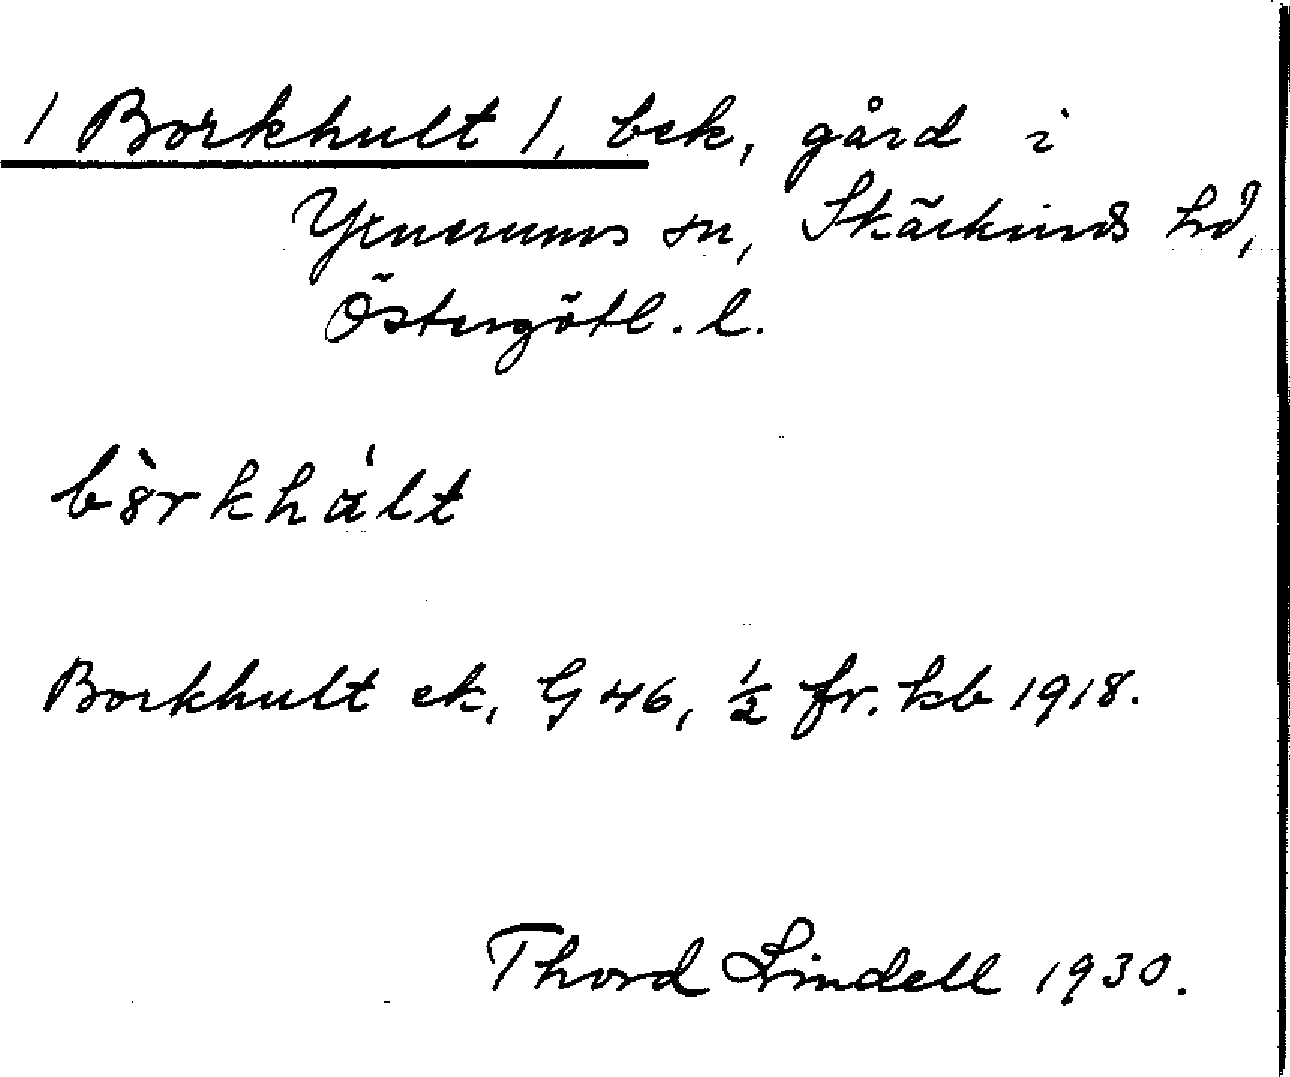 / Borkhult /, bek, gård i
Yxnerums sn, Skärkinds hd,
Östergötl. l.
bòrkhált
Borkhult ek, G 46, ½ fr. kb 1918.
Thord Lindell 1930.